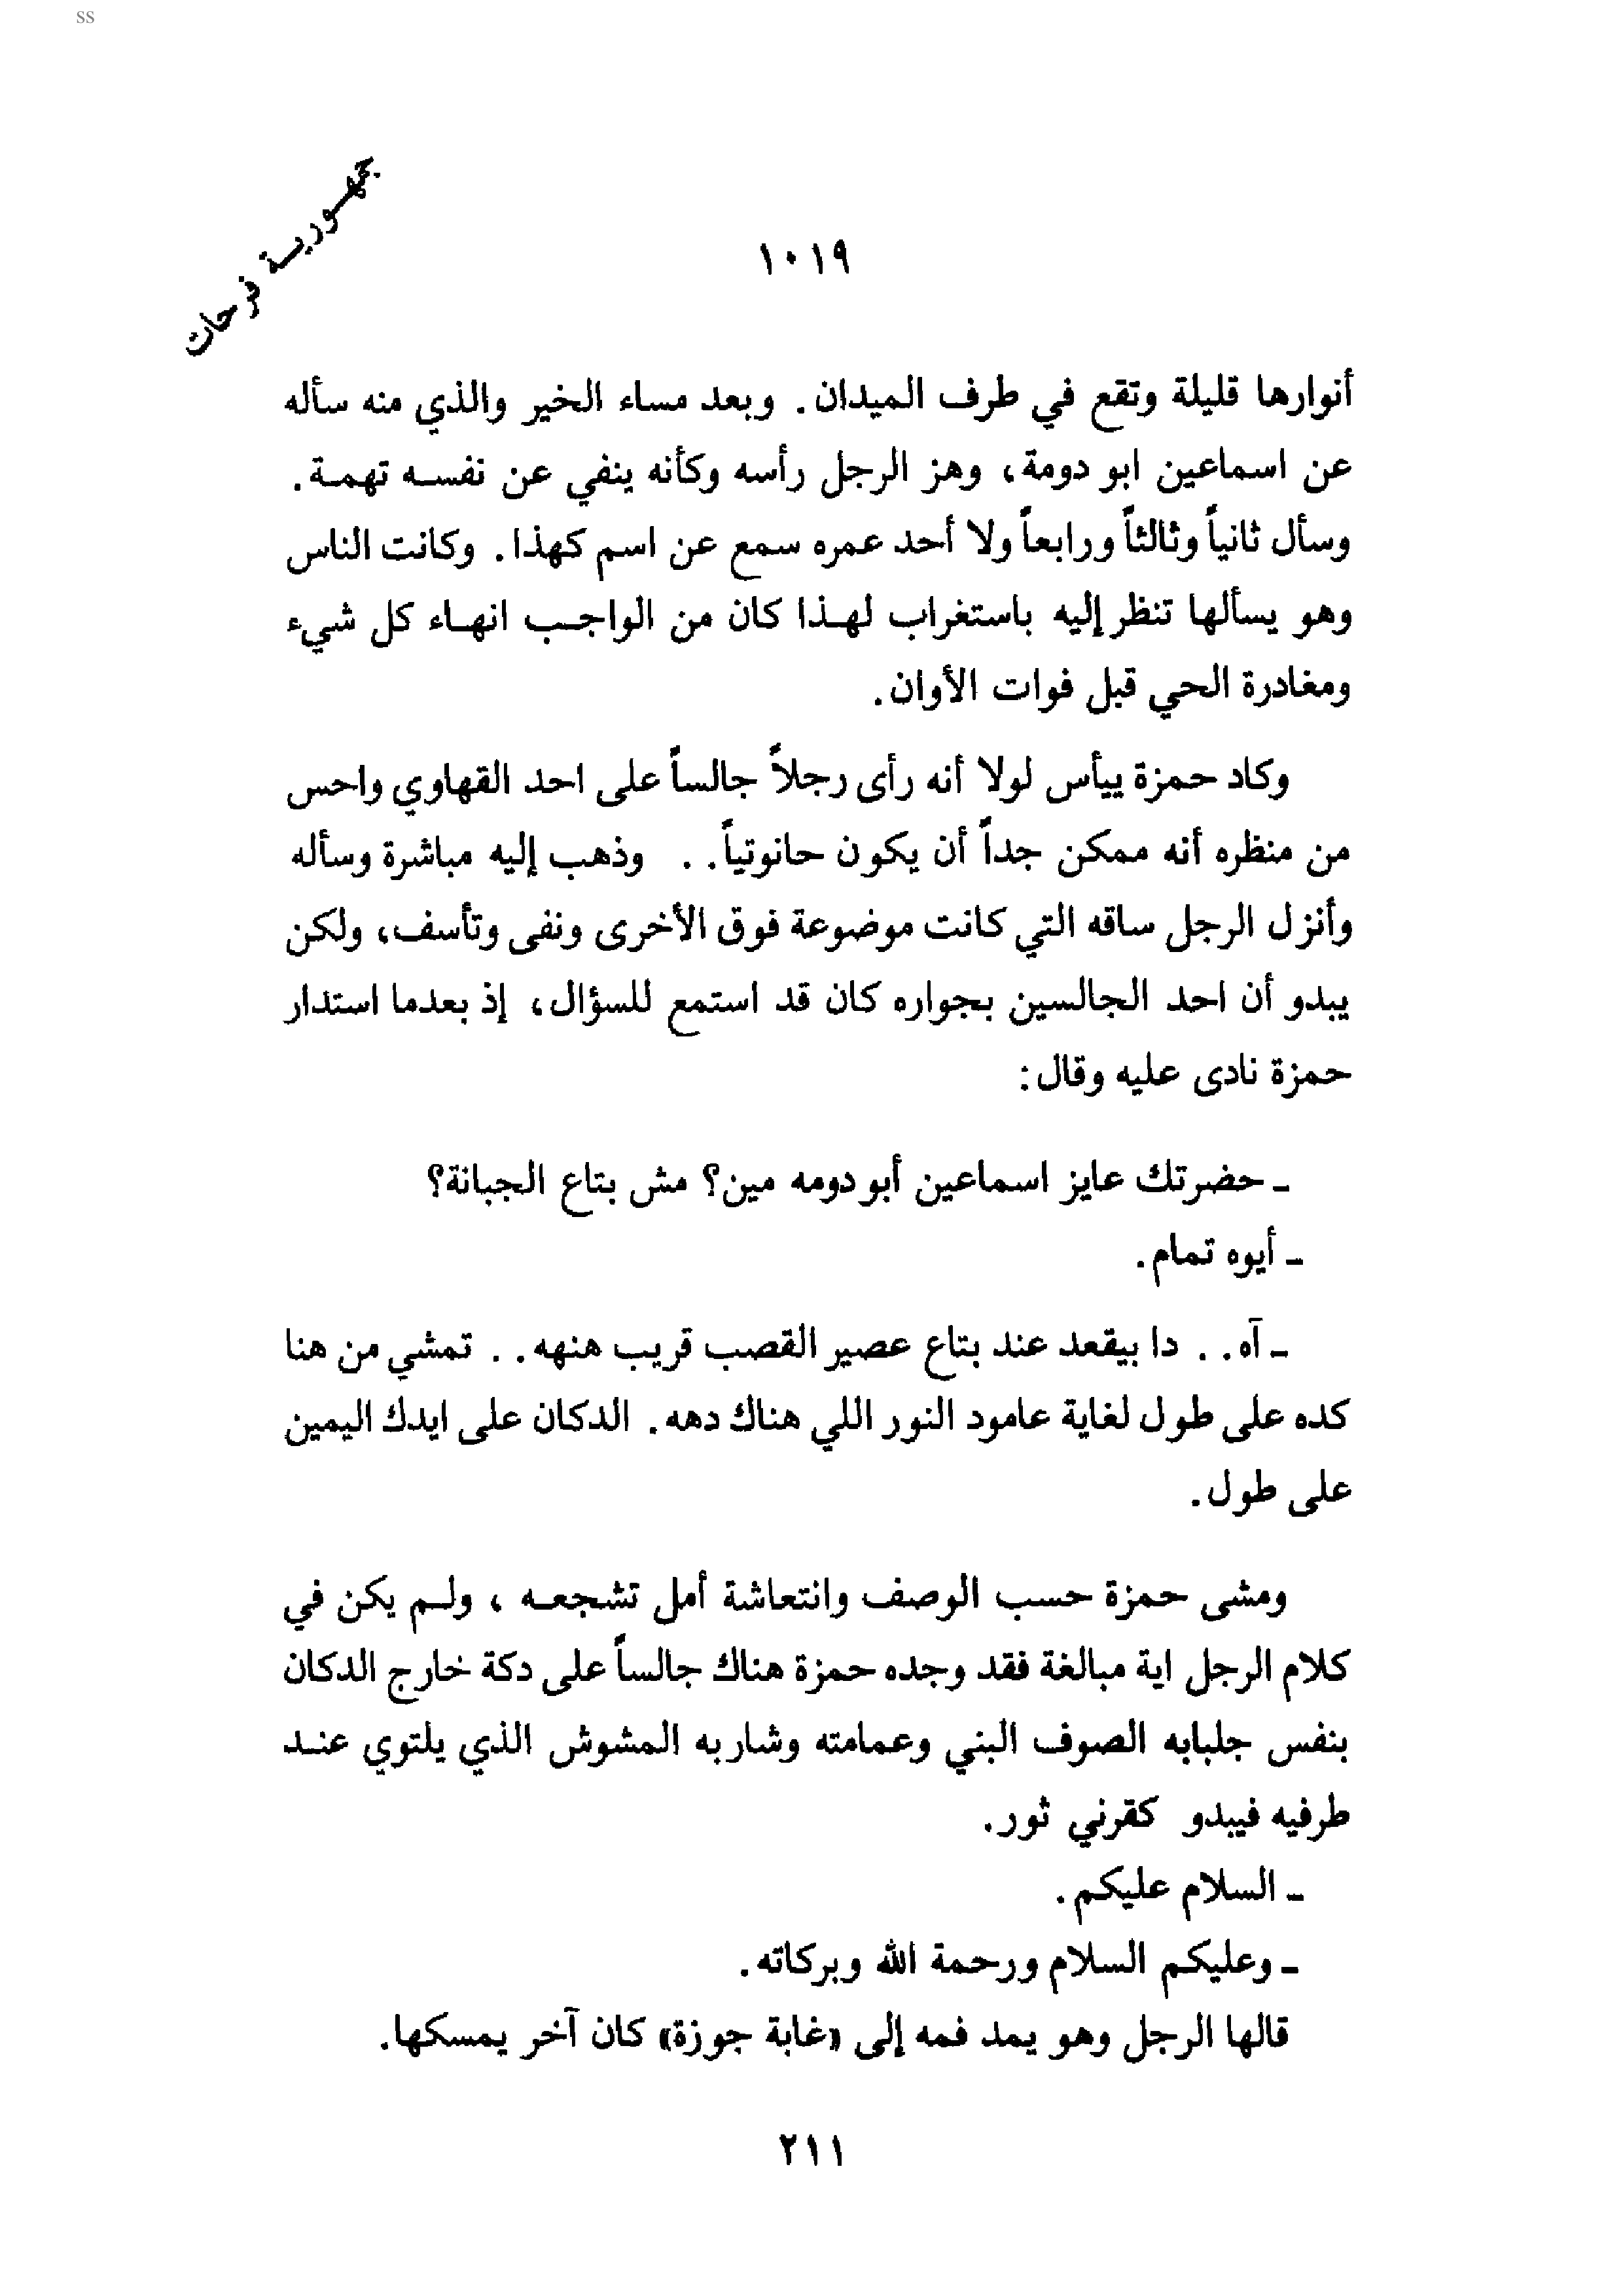 ss
جمهورية فرحات
١٠١٩
أنوارها قليلة وتقع في طرف الميدان. وبعد مساء الخير والذي منه سأله
عن اسماعين ابو دومة، وهز الرجل رأسه وكأنه ينفي عن نفسه تهمة.
وسأل ثانياً وثالثاً ورابعاً ولا أحد عمره سمع عن اسم كهذا. وكانت الناس
وهو يسألها تنظر إليه باستغراب لهذا كان من الواجب انهاء كل شيء
ومغادرة الحي قبل فوات الأوان.
وكاد حمزة ييأس لولا أنه رأى رجلاً جالساً على احد القهاوي واحس
من منظره أنه ممكن جداً أن يكون حانوتياً.. وذهب إليه مباشرة وسأله
وأنزل الرجل ساقه التي كانت موضوعة فوق الأخرى ونفى وتأسف، ولكن
يبدو أن احد الجالسين بجواره كان قد استمع للسؤال، إذ بعدما استدار
حمزة نادى عليه وقال:
ـ حضرتك عايز اسماعين أبو دومه مين؟ مش بتاع الجبانة؟
ـ أيوه تمام.
ـ آه.. دا بيقعد عند بتاع عصير القصب قريب هنهه.. تمشي من هنا
كده على طول لغاية عامود النور اللي هناك دهه. الدكان على ايدك اليمين
على طول.
ومشى حمزة حسب الوصف وانتعاشة أمل تشجعه ، ولم يكن في
كلام الرجل اية مبالغة فقد وجده حمزة هناك جالساً على دكة خارج الدكان
بنفس جلبابه الصوف البني وعمامته وشاربه المشوش الذي يلتوي عند
طرفيه فيبدو كقرني ثور.
ـ السلام عليكم.
ـ وعليكم السلام ورحمة الله وبركاته.
قالها الرجل وهو يمد فمه إلى «غابة جوزة» كان آخر يمسكها.
٢١١